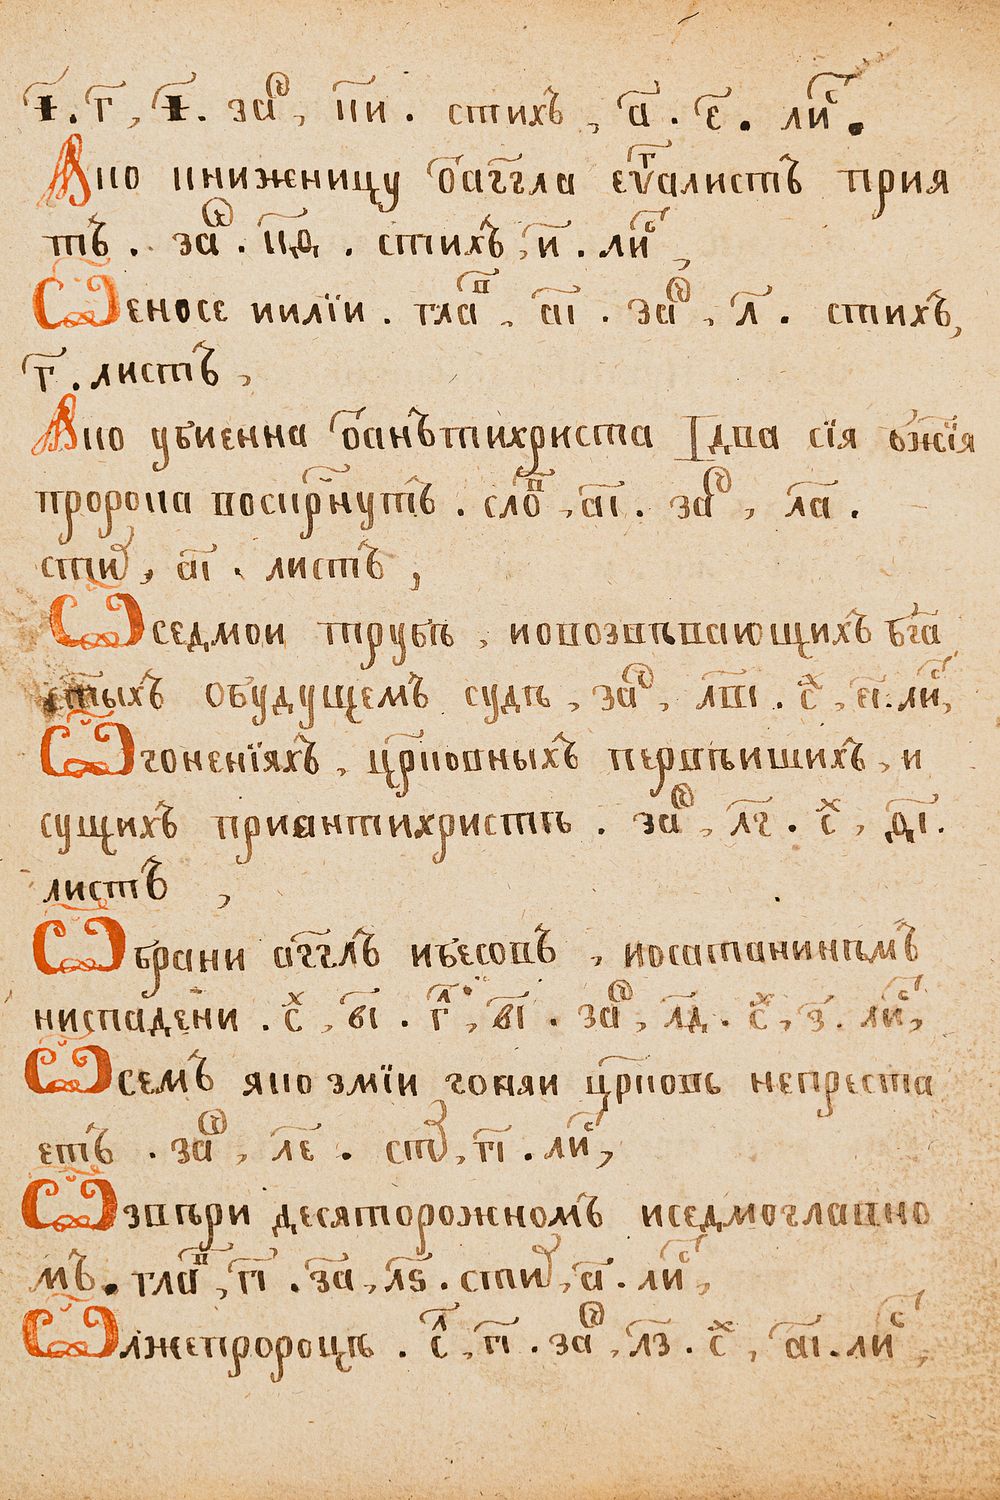 І҃. г҃, І҃. за҃ч, к҃и. стихъ, а҃. є҃. ли҃с.
Ꙗко книжницу ѿаггла еѵг҃алистъ прия
тъ. за҃ч. к҃д. стихъ, и҃. ли҃с,
Ѿеносе иилїи. гла҃в, а҃і. за҃ч, л҃. стихъ,
г҃. листъ,
Ꙗко убиенна ѿанътихриста Iдва сїя бж҃їя
пророка воскр҃нутъ. сло҃в, а҃і. за҃ч, л҃а.
сти҃х, а҃і. листъ,
Ѿседмои трубѣ, иовозвѣвающихъ бг҃а
ст҃ыхъ обудущемъ судѣ, за҃ч, л҃ші. с҃х, є҃і. ли҃с,
Ѿгоненїяхъ, цр҃ковныхъ первѣишихъ, и
сущихъ приантихристѣ. за҃ч, л҃г. с҃х, д҃і.
листъ,
Ѿбрани аггл҃ъ ибесовъ, иосатанинѣмъ
ниспадени. с҃х, в҃і. г҃л, в҃і. за҃ч, л҃д. с҃х, з҃. ли҃с,
Ѿсемъ яко змїи гоняи цр҃ковь непреста
етъ. за҃ч, л҃є. ст҃х, г҃і. ли҃с,
Ѿзвѣри десяторожномъ иседмоглавно
мъ. гла҃в, г҃і. з҃а, л҃ѕ. сти҃х, а҃. ли҃с,
Ѿлжепророцѣ. с҃л, г҃і. за҃ч, л҃з. с҃х, а҃і. ли҃с,